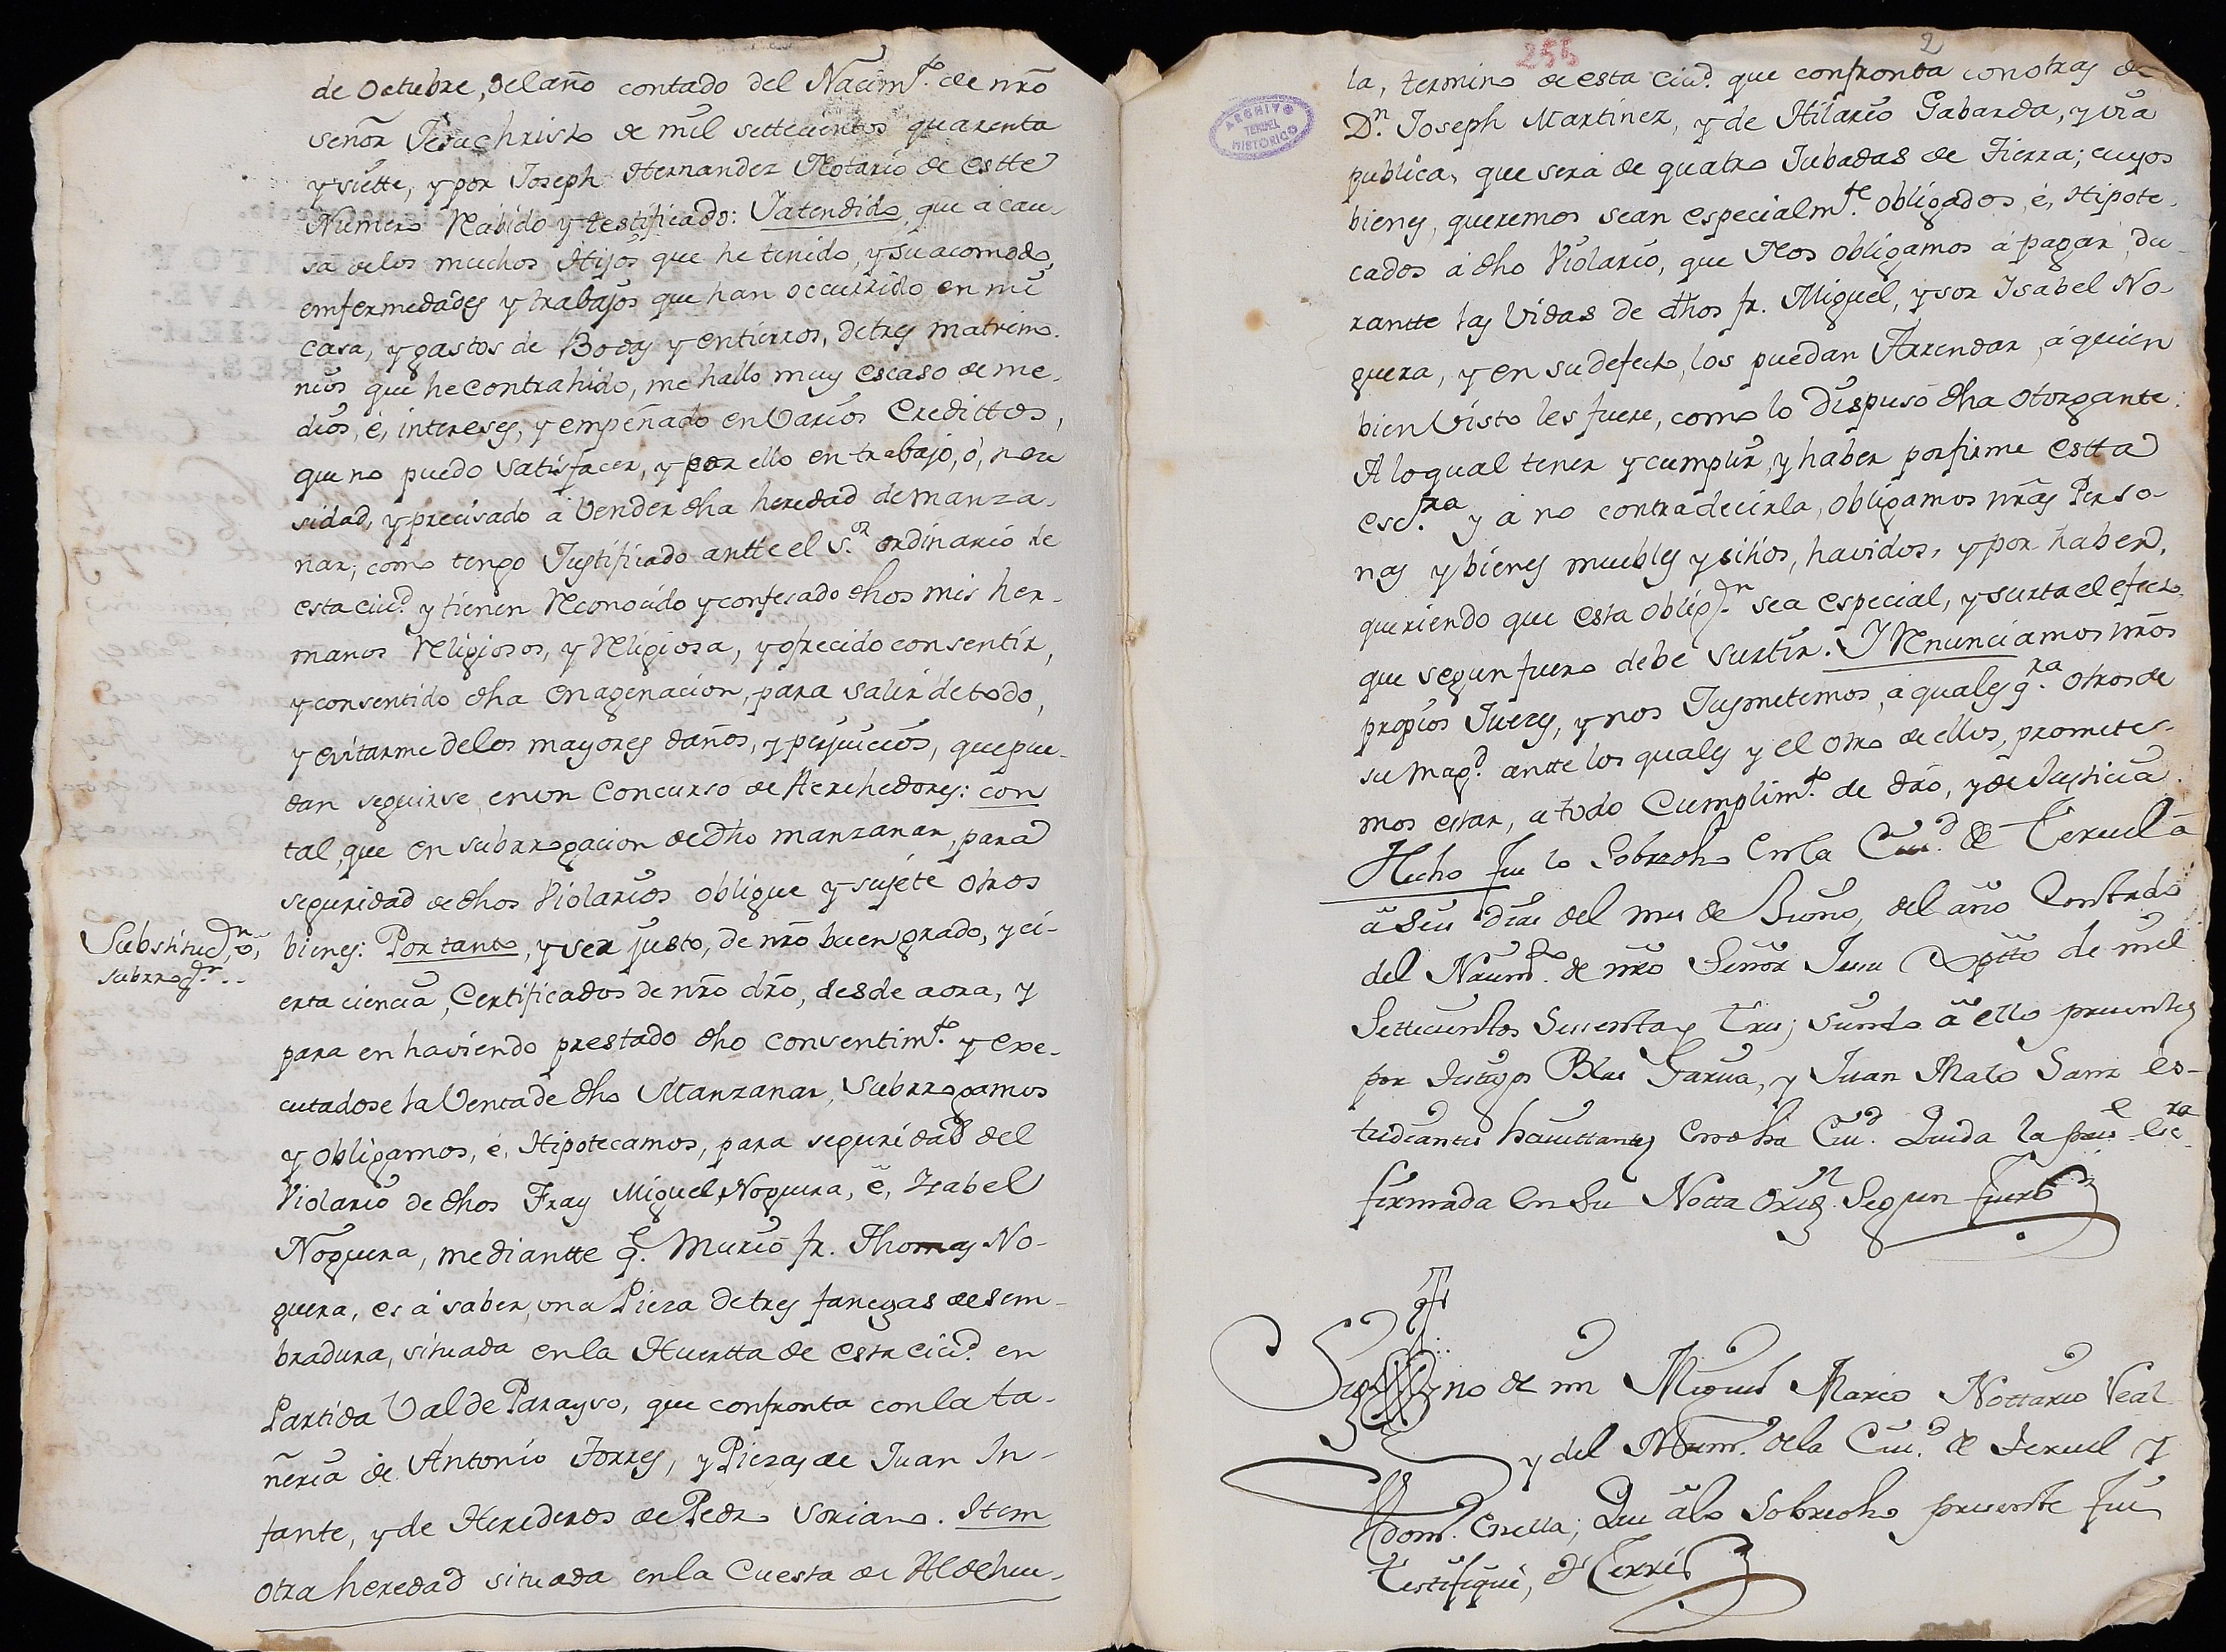 de Octubre, del año contado del Nacim.to de nrõ
señor Jesuchristo de mil settecientos quarenta
y siette, y por Joseph Hernandez Notario de estte
Numero Rẽbido y testificado: Jatendido, que à cau-
sa delos muchos Hijos que he tenido, y su acomodo,
emfermedades y trabajos que han occurrido en mi
casa, y gastos de Bodas y entierros, de tres matrimo-
nios que he contrahido, me hallo muy escaso de me-
dios, é, intereses, y empeñado en Varios Credittos,
que no puedo satisfacer, y por ello en trabajo, ó, nece
sidad, y precisado à Vender dha heredad de manza-
nar; como tengo Justificado antte el S.or ordinario de
esta ciu.d y tienen Reconocido y confesado dhos mis her-
manos Religiosos, y Religiosa, y ofrecido consentir,
y consentido dha enagenacion, para salir de todo,
y evitarme delos mayores daños, y perjuicios, que pue-
dan seguirse en un Concurso de Acrehedores: con
tal, que en subrrogacion de dho manzanar, para
seguridad de dhos Violarios obligue y sujéte otros
Substituc.n, ó,
subrrog.n ..
bienes: Por tanto, y ser justo, de nrõ buen grado, y ci-
erta ciencia, Certificados de nrõ drõ, desde aora, y
para en haviendo prestado dho consentim.to y exe-
cutadose la Venta de dho Manzanar, Subrrogamos
y obligamos, é, Hipotecamos, para seguridad del
Violario de dhos Fray Miguel Noguera, é, Isabel
Noguera, mediantte q.e Murió fr. Thomas No-
guera, es à saber, una Pieza de tres fanegas de sem-
bradura, situada en la Huertta de esta ciu.d en
Partida Val de Parayso, que confronta con la ta-
ñeria de Antonio Torres, y Piezas de Juan In-
fante, y de Herederos de Pedro Soriano. Item
otra heredad situada en la Cuesta de Aldehue-
255
2
ARCHIVO
TERUEL
HISTORICO
la, termino de esta ciu.d que confronta con otras de
D.n Joseph Martinez, y de Hilario Gabarda, y via
publica, que sera de quatro Jubadas de Tierra; cuyos
bienes, queremos sean especialm.te obligados, é, Hipote-
cados à dho Violario, que Nos obligamos à pagar, du-
rantte las Vidas de dhos fr. Miguel, y sor Isabel No-
guera, y en su defecto, los puedan Arrendar, à quien
bien Visto les fuere, como lo Dispusó dha otorgante:
A lo qual tener y cumplir, y haber por firme estta
esc.ra y à no contradecirla, obligamos nrãs Perso-
nas y bienes muebles y sitios, havidos, y por haber,
queriendo que esta oblig.n sea especial, y surta el efecto,
que segun fuero debe surtir. J Renunciamos nrõs
propios Juezes, y nos Jusmetemos, à quales q.ra otros de
su Mag.d antte los quales y el otro de ellos, promete-
mos estar, a todo Cumplim.to de drõ, y de Justicia.
Hecho fue lo Sobredho en la Ciu.d de Teruel à
à Seis dias del mes de Junio, del año Contado
del Nacim.to de nrõ Señor Jesu Xptto de mil
Settecientos Sesenta y tres; siendo à ello presentes
por testigos Blas Garcia, y Juan Malo Sanz es-
tudiantes havittantes en dha Ciu.d Queda la pres.te Esc.ra
firmada en su Notta Orig.l Segun fuero
Sig no de mi Miguel Marco Nottario Real
y del Num.o dela Ciu.d de Teruel y
Dom.do en ella; Que àlo Sobredho presente fui
testifiqué, et Cerré